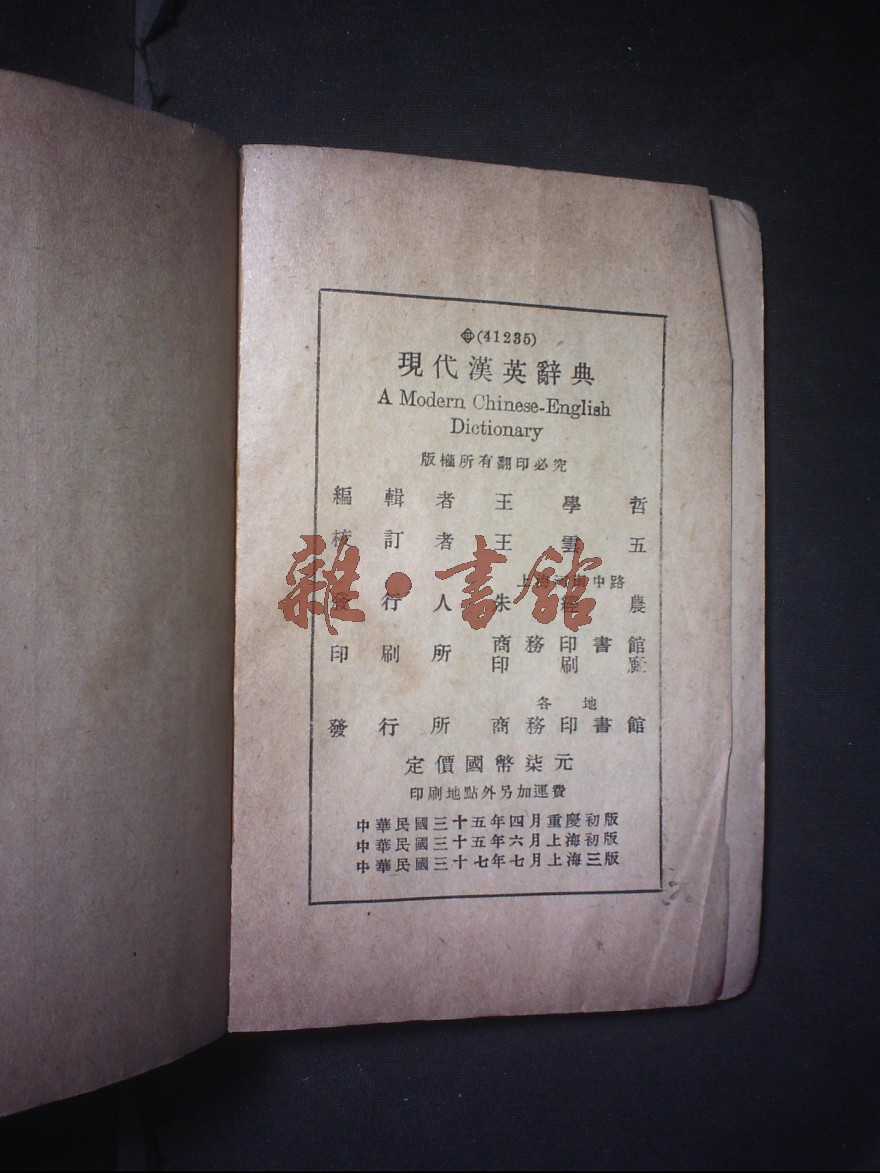 (41235)
現代漢英辭典
A Modern Chinese-English
Dictionary
版權所有翻印必究
編輯者 王學哲
校訂者 王雲五
上海河南中路
發行人 朱經農
印刷所 商務印書館
印刷廠
各地
發行所 商務印書館
定價國幣柒元
印刷地點外另加運費
中華民國三十五年四月重慶初版
中華民國三十五年六月上海初版
中華民國三十七年七月上海三版
雜·書館